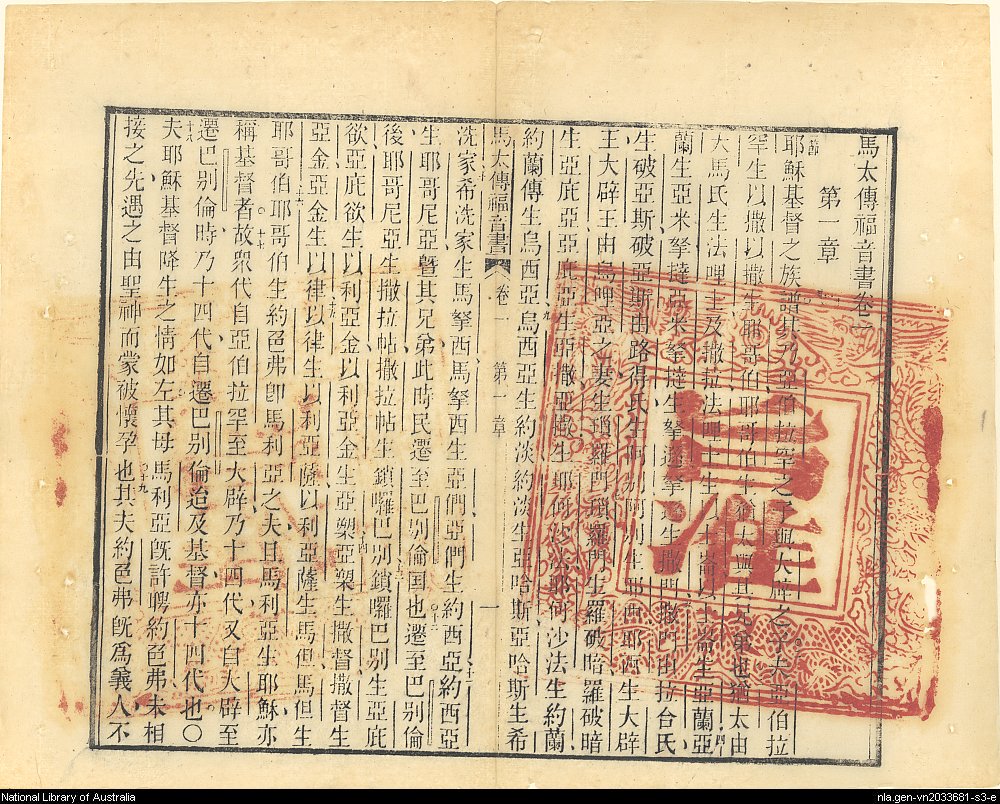 馬太傳福音書卷一
第一章
耶穌基督之族譜其乃亞伯拉罕之子與大辟之子夫亞伯拉
罕生以撒以撒生耶哥伯耶哥伯生猶大與其兄弟也猶大由
大馬氏生法哩士及撒拉法哩士生
蘭生亞米拏撻亞米拏撻生拏遜拏遜生撒門撒門由拉台氏
生破亞斯破亞斯由路得氏生阿別阿別生耶西耶西生大辟
王大辟王由烏哩亞之妻生瑣羅門瑣羅門生羅破暗羅破暗
生亞庇亞亞庇亞生亞撒亞撒生耶何沙法耶何沙法生約蘭
約蘭傳生烏西亞烏西亞生約淡約淡生亞哈斯亞哈斯生希
馬太傳福音書 卷一 第一章 一
洗家希洗家生馬拏西馬拏西生亞們亞們生約西亞約西亞
生耶哥尼亞曁其兄弟此時民遷至巴別倫国也遷至巴別倫
後耶哥尼亞生撒拉帖撒拉帖生鎖囉巴別鎖囉巴別生亞庇
欲亞庇欲生以利亞金以利亞金生亞槊亞槊生撒督撒督生
亞金亞金生以律以律生以利亞薩以利亞薩生馬但馬但生
耶哥伯耶哥伯生約色弗卽馬利亞之夫且馬利亞生耶穌亦
稱基督者故衆代自亞伯拉罕至大辟乃十四代又自大辟至
遷巴別倫時乃十四代自遷巴別倫迨及基督亦十四代也〇
夫耶穌基督降生之情如左其母馬利亞旣許聘約色弗未相
接之先遇之由聖神而蒙被懷孕也其夫約色弗旣爲義人不
National Library of Australia
nla.gen-vn2033681-s3-e